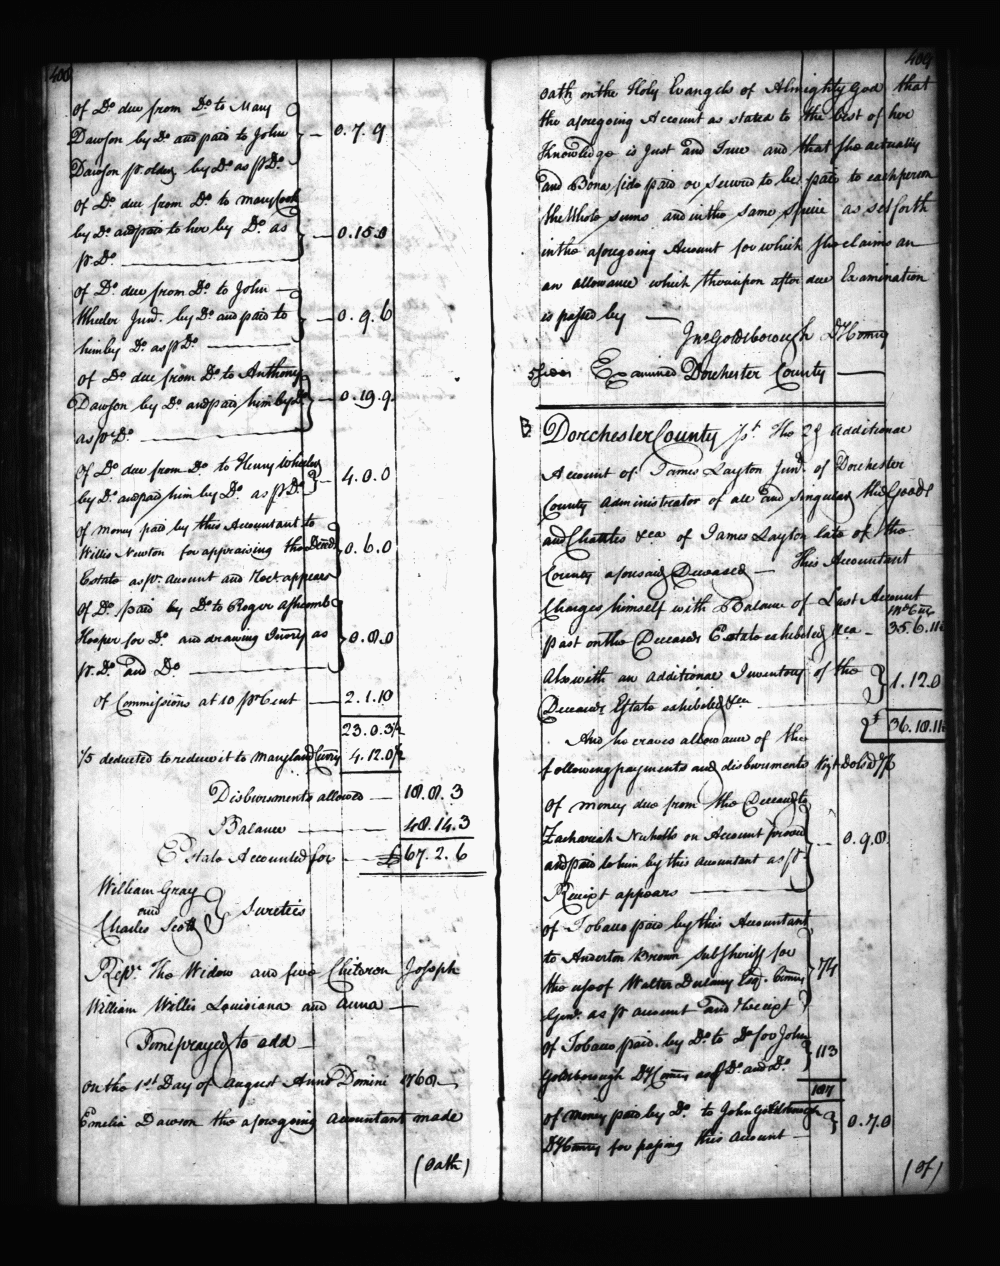 408
of Do due from Do to Mary
Dawson by Do and paid to John
Dawson pr. order by Do as pr Do — 0.7.9
of Do due from Do to Mary Cook
by Do and paid to her by Do as — 0.15.0
pr Do
of Do due from Do to John
Wheeler Junr. by Do and paid to — 0.9.6
him by Do as pr Do
of Do due from Do to Anthony
Dawson by Do and paid him by Do — 0.19.9
as pr Do
of Do due from Do to Henry Wheeler
by Do and paid him by Do as pr Do — 4.0.0
of money paid by this Accountant to
Willis Newton for appraising the Deced. 0.6.0
Estate as pr. account and Rect appears
of Do paid by Do to Roger
Hooper for Do and drawing Invry as 0.8.0
pr. Do and Do
of Commissions at 10 pr Cent — 2.1.10
23.0.3½
1/5 deducted to reduce it to Maryland Curry 4.12.0½
Disbursments allowed — 18.8.3
Ballance — 48.14.3
Estate Accounted for — £67.2.6
William Gray
and
Charles Scott } Sureties
Repr. The Widow and five Children Joseph
William Willis Louisiana and Anna
Time prayed to add
On the 1st Day of August Anno Domini 1768
Emelia Dawson the aforegoing accountant made
(Oath)
409
oath on the Holy Evangels of Almighty God that
the aforegoing Account as stated to the best of her
Knowledge is Just and True and that she actually
and Bona fide paid or secured to be paid to each person
the Whole sums and in the same Specie as set forth
in the aforegoing Account for which she claims an
an allowance which thereupon after due Examination
is passed by
Jno Goldsborough DyComry
Examined Dorchester County
Dorchester County Sst. The 2d additional
Account of James Layton Junr. of Dorchester
County Administrator of all and singular the Goods
and Chattles &ca of James Layton late of the
County aforesaid Deceased — This Accountant
Charges himself with Balance of Last Account
past on the Deceaseds Estate exhibited &ca — 35.6.11½
Also with an additional Inventory of the
Deceaseds Estate exhibited &ca 1.12.0
36.18.11½
And he craves allowance of the
following payments and disbursments Vizt
of money due from the Deceased to
Zachariah Nicholls on Account proved
and paid to him by this accountant as pr — 0.9.8
Receipt appears
of Tobacco paid by this Accountant
to Anderton Brown Subsheriff for
the use of Walter Dulany Esqr. Comry 74
Genl. as pr account and Receipt
of Tobacco paid by Do to Do for John 113
Goldsborough DyComry as pr Do and Do
187
of money paid by Do to John Goldsborough 0.7.0
DyComry for passing this account
(Of)